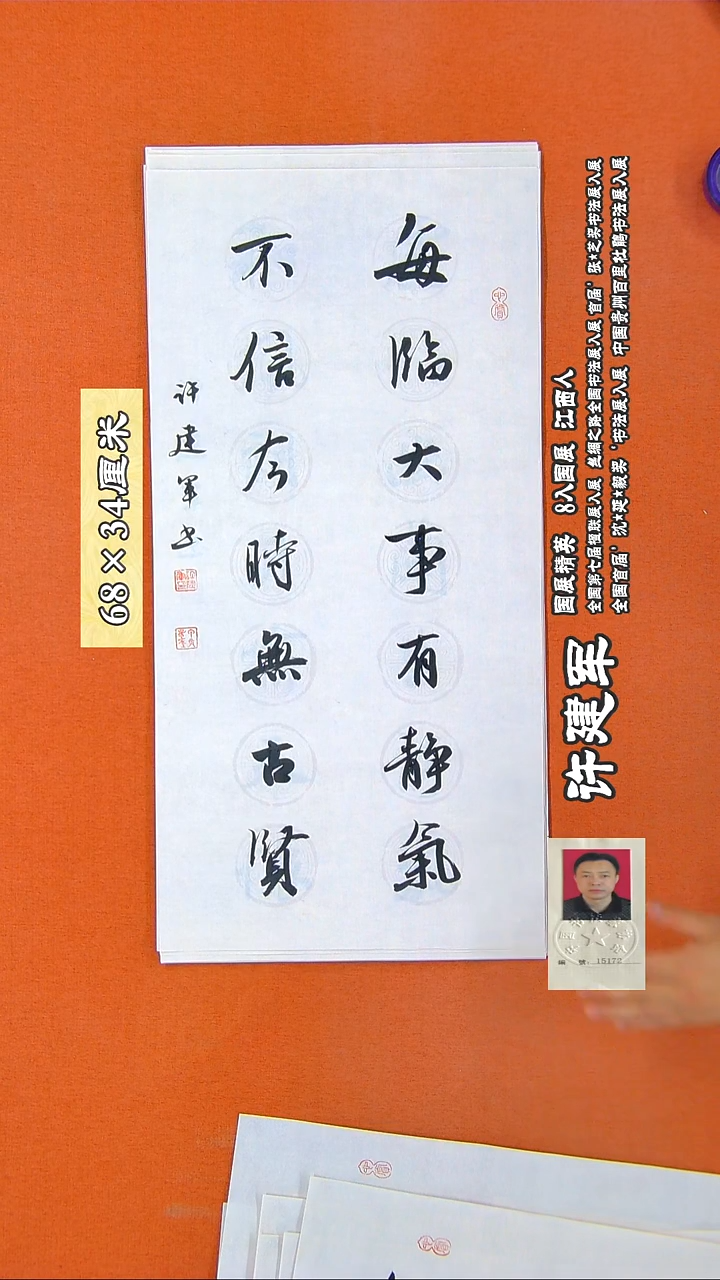 每临大事有静氣
不信今時無古賢
许建军书
68×34厘米
国展精英 8入国展 江西人
全国第七届楹联展入展 丝绸之路全国书法展入展 首届'张★芝奖书法展入展
全国首届'沈★延★毅奖'书法展入展 中国贵州百里杜鹃书法展入展
许建军
编 号:15172